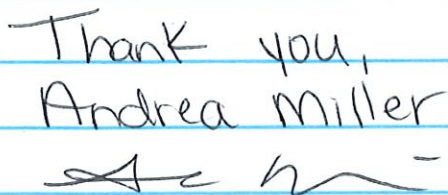 Thank you,
Andrea Miller